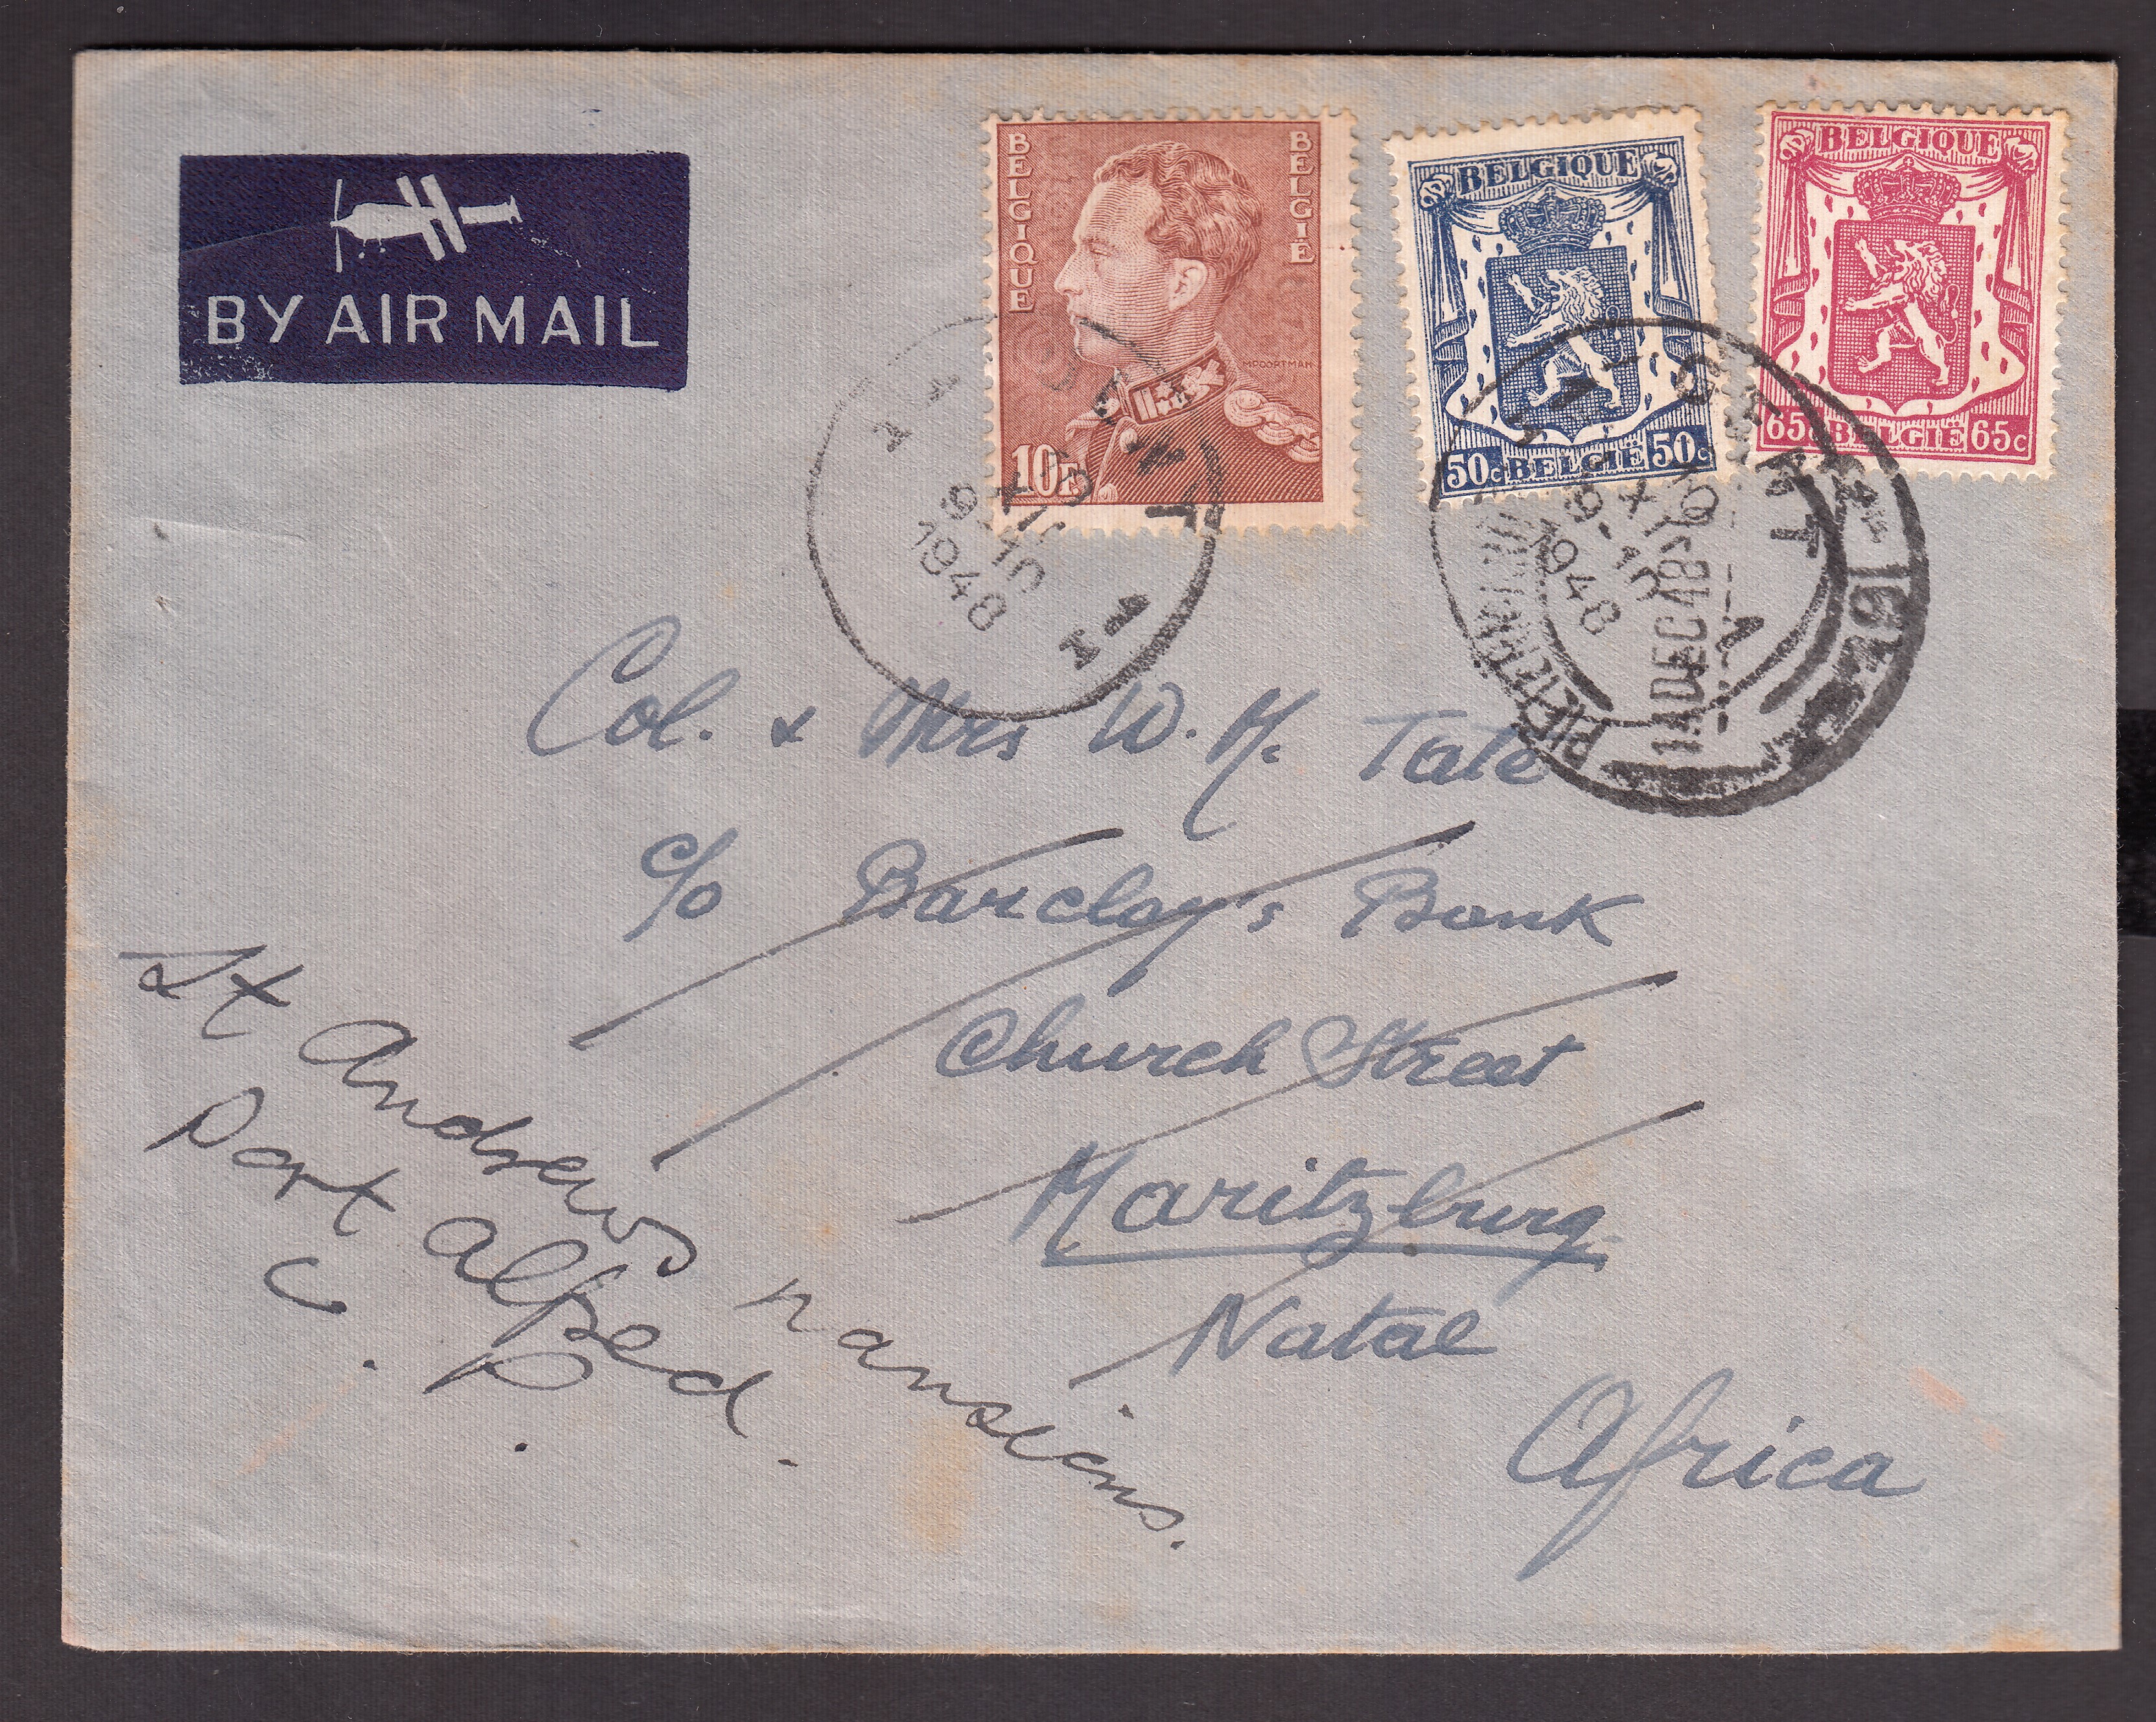 BY AIR MAIL
BELGIQUE
BELGIË
MPOORTMAN
10F
BELGIQUE
50c BELGIË 50c
BELGIQUE
65c BELGIË 65c
GENT
9-10
XII
1948
GENT
9-10
XII
1948
14 DEC 48
Col. & Mrs W. H. Tate
c/o Barclay's Bank
Church Street
Maritzburg
Natal
Africa
St Andrews Mansions.
Port Alfred.
C. P.